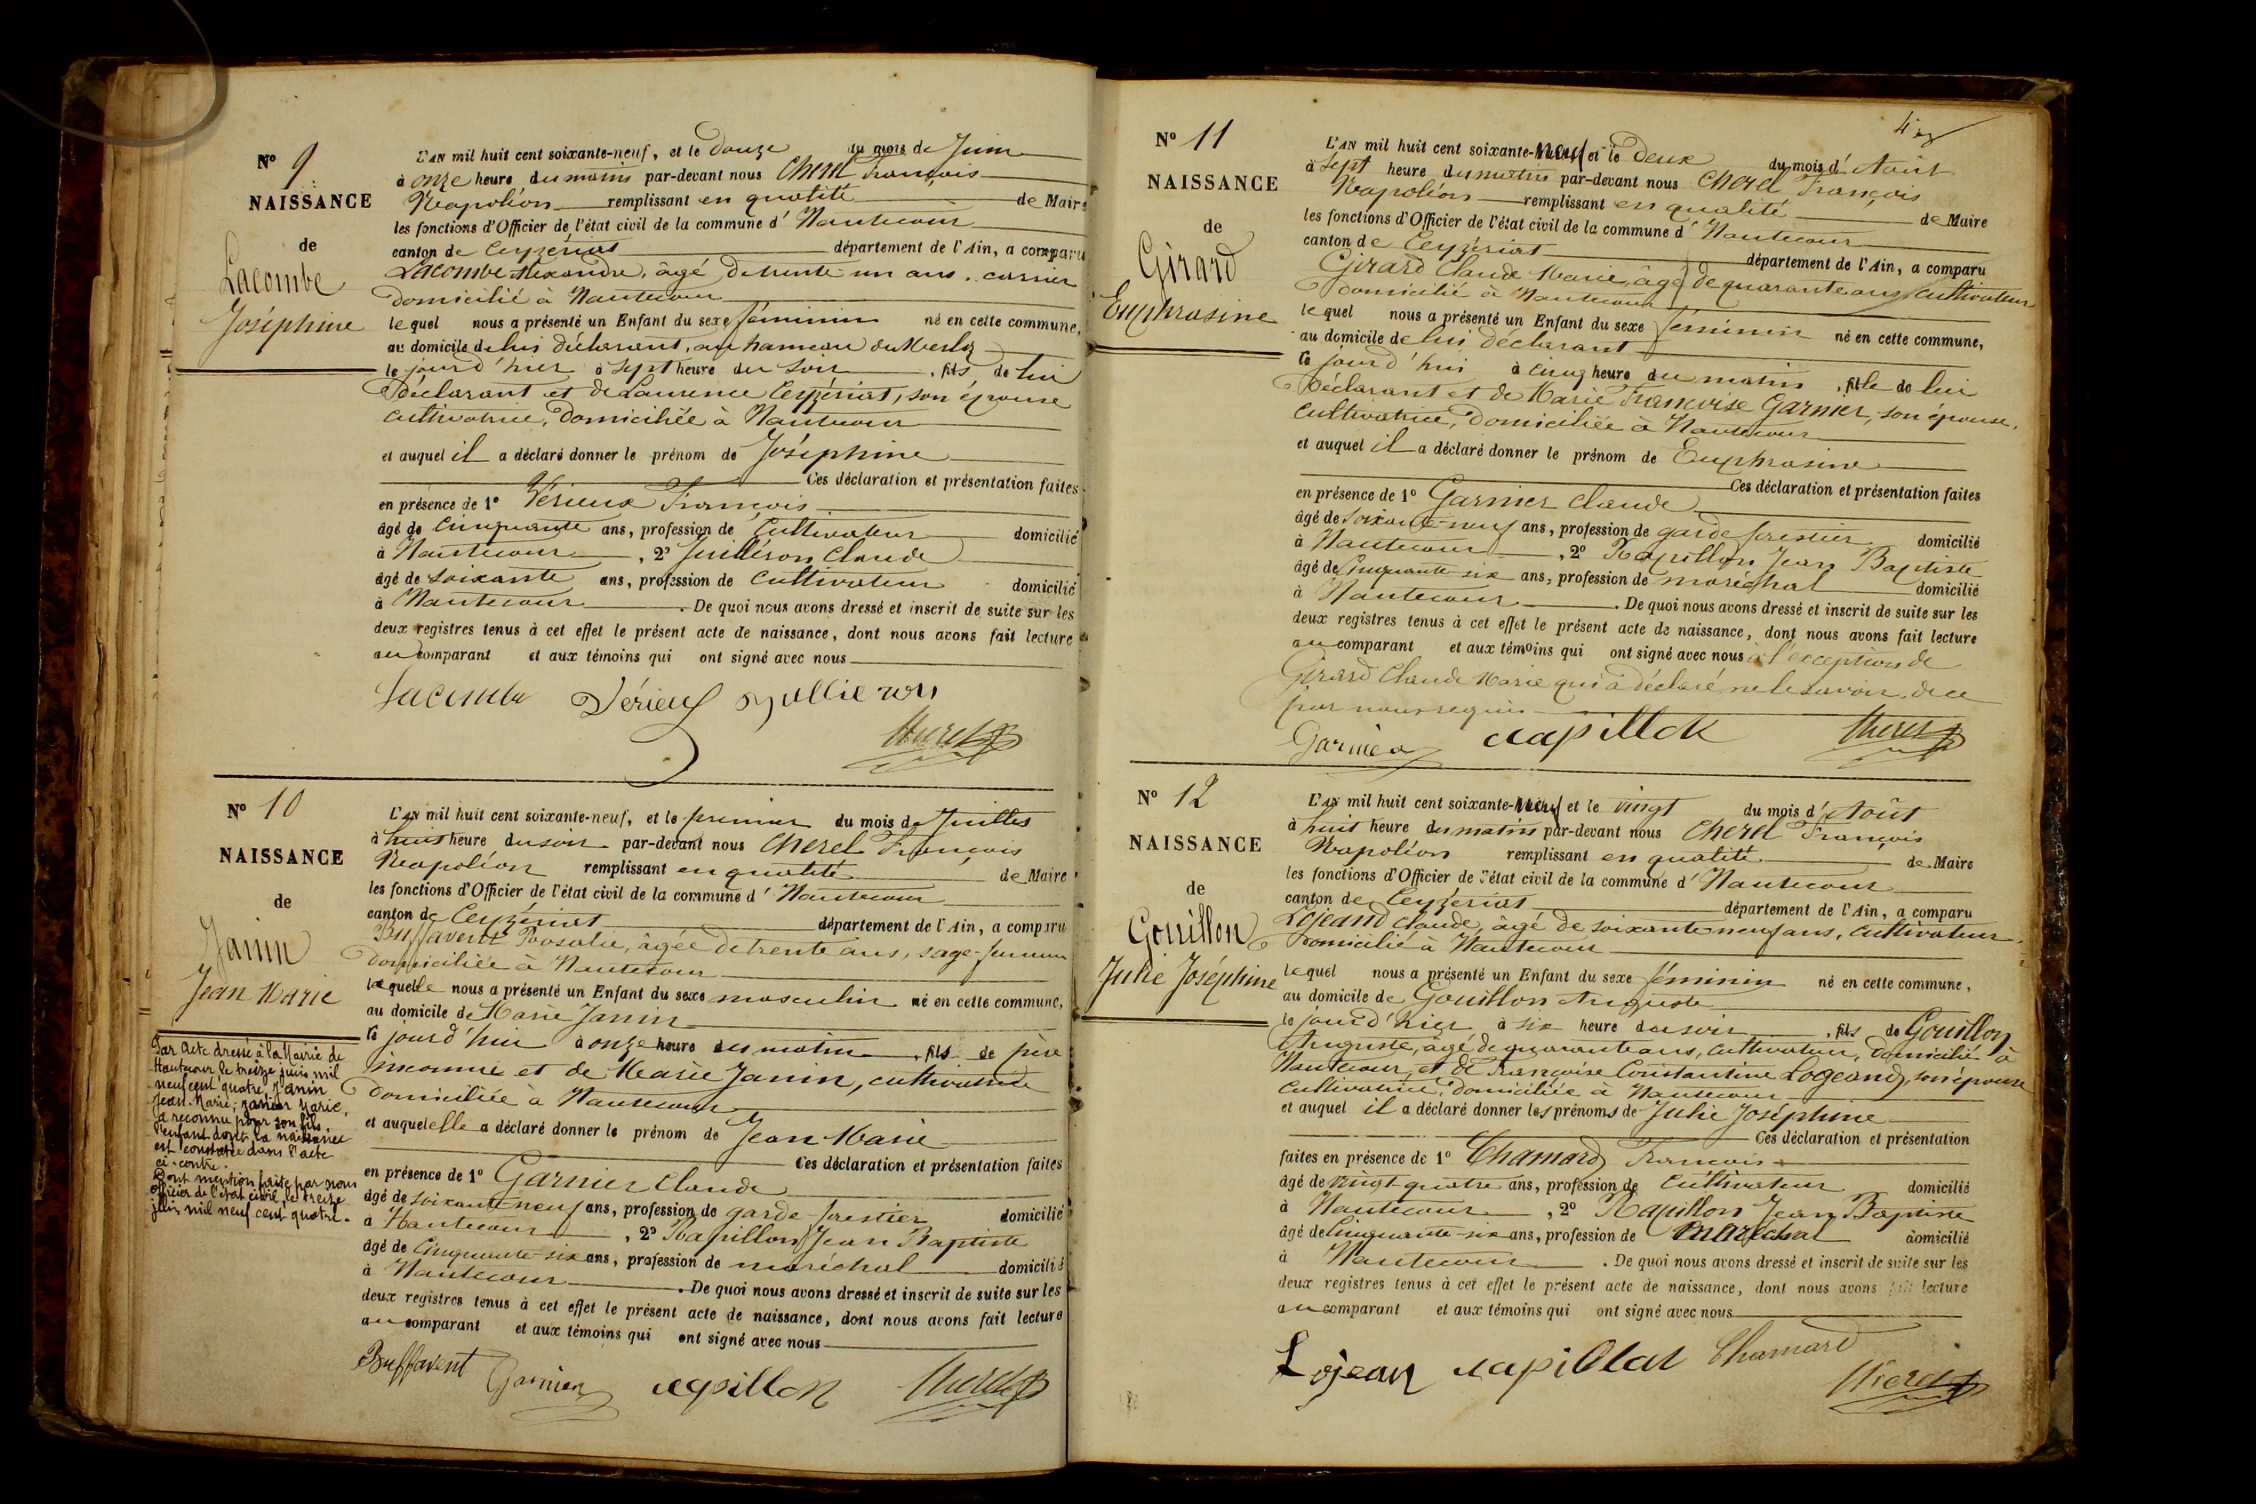 Nº 9
NAISSANCE
de
Lacombe
Joséphine
L'AN mil huit cent soixante-neuf, et le Douze du mois de Juin
à onze heure du matin par-devant nous Cherel François
Napoléon remplissant en qualité de Maire
les fonctions d'Officier de l'état civil de la commune d' Hautecour
canton de Ceyzériat département de l'Ain, a comparu
Lacombe Alexandre, âgé de trente un ans, carrier
domicilié à Hautecour
lequel nous a présenté un Enfant du sexe féminin né en cette commune,
au domicile de lui déclarant, au hameau du
le jour d'hier à sept heure du soir, fils de lui
Déclarant et de Laurence Ceyzériat, son épouse
cultivatrice, domiciliée à Hautecour
et auquel il a déclaré donner le prénom de Joséphine
Ces déclaration et présentation faites
en présence de 1º Vérieux François
âgé de cinquante ans, profession de Cultivateur domicilié
à Hautecour, 2º Juilléron Claude
âgé de soixante ans, profession de cultivateur domicilié
à Hautecour. De quoi nous avons dressé et inscrit de suite sur les
deux registres tenus à cet effet le présent acte de naissance, dont nous avons fait lecture
au comparant et aux témoins qui ont signé avec nous
Lacombe Vérieux Jullieron
Cherel
Nº 10
NAISSANCE
de
Janin
Jean Marie
Par acte dressé à la Mairie de
Hautecour le treize juin mil
neuf cent quatre, Janin
Jean-Marie, Janin Marie,
a reconnu pour son fils,
l'enfant dont la naissance
est constatée dans l'acte
ci-contre.
Dont mention faite par nous
officier de l'état civil, le treize
juin mil neuf cent quatre.
L'AN mil huit cent soixante-neuf, et le premier du mois de Juillet
à huit heure du soir par-devant nous Cherel François
Napoléon remplissant en qualité de Maire
les fonctions d'Officier de l'état civil de la commune d' Hautecour
canton de Ceyzériat département de l'Ain, a comparu
Buffavent Rosalie, âgée de trente ans, sage-femme
domiciliée à Hautecour
laquelle nous a présenté un Enfant du sexe masculin né en cette commune,
au domicile de Marie Janin
le jour d'hui à onze heure du matin, fils de père
inconnu et de Marie Janin, cultivatrice
domiciliée à Hautecour
et auquel elle a déclaré donner le prénom de Jean Marie
Ces déclaration et présentation faites
en présence de 1º Garnier Claude
âgé de soixante neuf ans, profession de garde-forestier domicilié
à Hautecour, 2º Rapillon Jean Baptiste
âgé de Cinquante-six ans, profession de maréchal domicilié
à Hautecour. De quoi nous avons dressé et inscrit de suite sur les
deux registres tenus à cet effet le présent acte de naissance, dont nous avons fait lecture
au comparant et aux témoins qui ont signé avec nous
Buffavent Garnier rapillon Cherel
Nº 11
NAISSANCE
de
Girard
Euphrasine
L'AN mil huit cent soixante-neuf et le Deux du mois d' Août
à sept heure du matin par-devant nous Cherel François
Napoléon remplissant en qualité de Maire
les fonctions d'Officier de l'état civil de la commune d' Hautecour
canton de Ceyzériat département de l'Ain, a comparu
Girard Claude Marie, âgé de quarante ans, cultivateur
domicilié à Hautecour
lequel nous a présenté un Enfant du sexe féminin né en cette commune,
au domicile de lui déclarant
le jour d'hui à cinq heure du matin, fille de lui
Déclarant et de Marie Françoise Garnier, son épouse,
Cultivatrice, Domiciliée à Hautecour
et auquel il a déclaré donner le prénom de Euphrasine
Ces déclaration et présentation faites
en présence de 1º Garnier Claude
âgé de soixante-neuf ans, profession de garde forestier domicilié
à Hautecour, 2º Rapillon Jean Baptiste
âgé de Cinquante-six ans, profession de maréchal domicilié
à Hautecour. De quoi nous avons dressé et inscrit de suite sur les
deux registres tenus à cet effet le présent acte de naissance, dont nous avons fait lecture
au comparant et aux témoins qui ont signé avec nous à l'exception de
Girard Claude Marie qui a déclaré ne le savoir, de ce
par nous requis
Garnier rapillon Cherel
Nº 12
NAISSANCE
de
Gouillon
Julie Joséphine
L'AN mil huit cent soixante-neuf et le vingt du mois d' Août
à huit heure du matin par-devant nous Cherel François
Napoléon remplissant en qualité de Maire
les fonctions d'Officier de l'état civil de la commune d' Hautecour
canton de Ceyzériat département de l'Ain, a comparu
Lojeand Claude, âgé de soixante neuf ans, cultivateur
domicilié à Hautecour
lequel nous a présenté un Enfant du sexe féminin né en cette commune,
au domicile de Gouillon Auguste
le jour d'hier à six heure du soir, fils de Gouillon
Auguste, âgé de quarante ans, cultivateur, domicilié à
Hautecour, et de Françoise Constantine Logeand, son épouse
cultivatrice, domiciliée à Hautecour
et auquel il a déclaré donner les prénoms de Julie Joséphine
Ces déclaration et présentation
faites en présence de 1º Chamard François
âgé de vingt quatre ans, profession de cultivateur domicilié
à Hautecour, 2º Rapillon Jean Baptiste
âgé de Cinquante-six ans, profession de Maréchal domicilié
à Hautecour. De quoi nous avons dressé et inscrit de suite sur les
deux registres tenus à cet effet le présent acte de naissance, dont nous avons fait lecture
au comparant et aux témoins qui ont signé avec nous
Lojean rapillon Chamard
Cherel